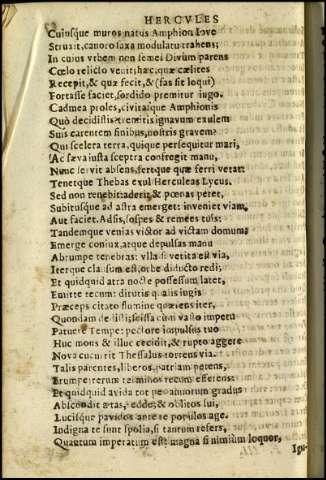 HERCVLES
Cuiusque muros natus Amphion Ioue
Struxit, canoro saxa modulatu trahens;
In cuius vrbem non semel Diuûm parens
Cœlo relicto venit; hæc, quæ cælites
Recepit, & quæ fecit, & (fas sit loqui)
Fortasse faciet, sordido premitur iugo.
Cadmea proles, ciuitasque Amphionis
Quò decidistis? tremitis ignauum exulem
Suis carentem finibus, nostris grauem?
Qui scelera terra, quique persequitur mari,
Ac sæua iusta sceptra confregit manu,
Nunc seruit absens, fertque quæ ferri vetat:
Tenetque Thebas exul Herculeas Lycus.
Sed non tenebit: aderit, & pœnas petet,
Subitusque ad astra emerget: inueniet viam,
Aut faciet. Adsis, sospes & remees tuis:
Tandemque venias victor ad victam domum:
Emerge coniux, atque depulsas manu
Abrumpe tenebras: vlla si retro via est,
Iterque clausum est, orbe diducto redi;
Et quidquid atra nocte possessum latet,
Emitte tecum: dirutis qualis iugis
Præceps citato flumini quærens iter,
Quondam stetisti; scissa cum vasto impetu
Patuere Tempe: pectore impulsus tuo
Huc mons & illuc cecidit, & rupto aggere
Noua cucurrit Thessalus torrens via.
Talis parentes, liberos, patriam petens,
Erumpe rerum terminos tecum efferens:
Et quidquid auida tot per annorum gradus
Abscondit ætas, redde; & oblitos sui,
Lucisque pauidos ante te populos age.
Indigna te sunt spolia, si tantum refers,
Quantum imperatum est. magna si nimiùm loquor,